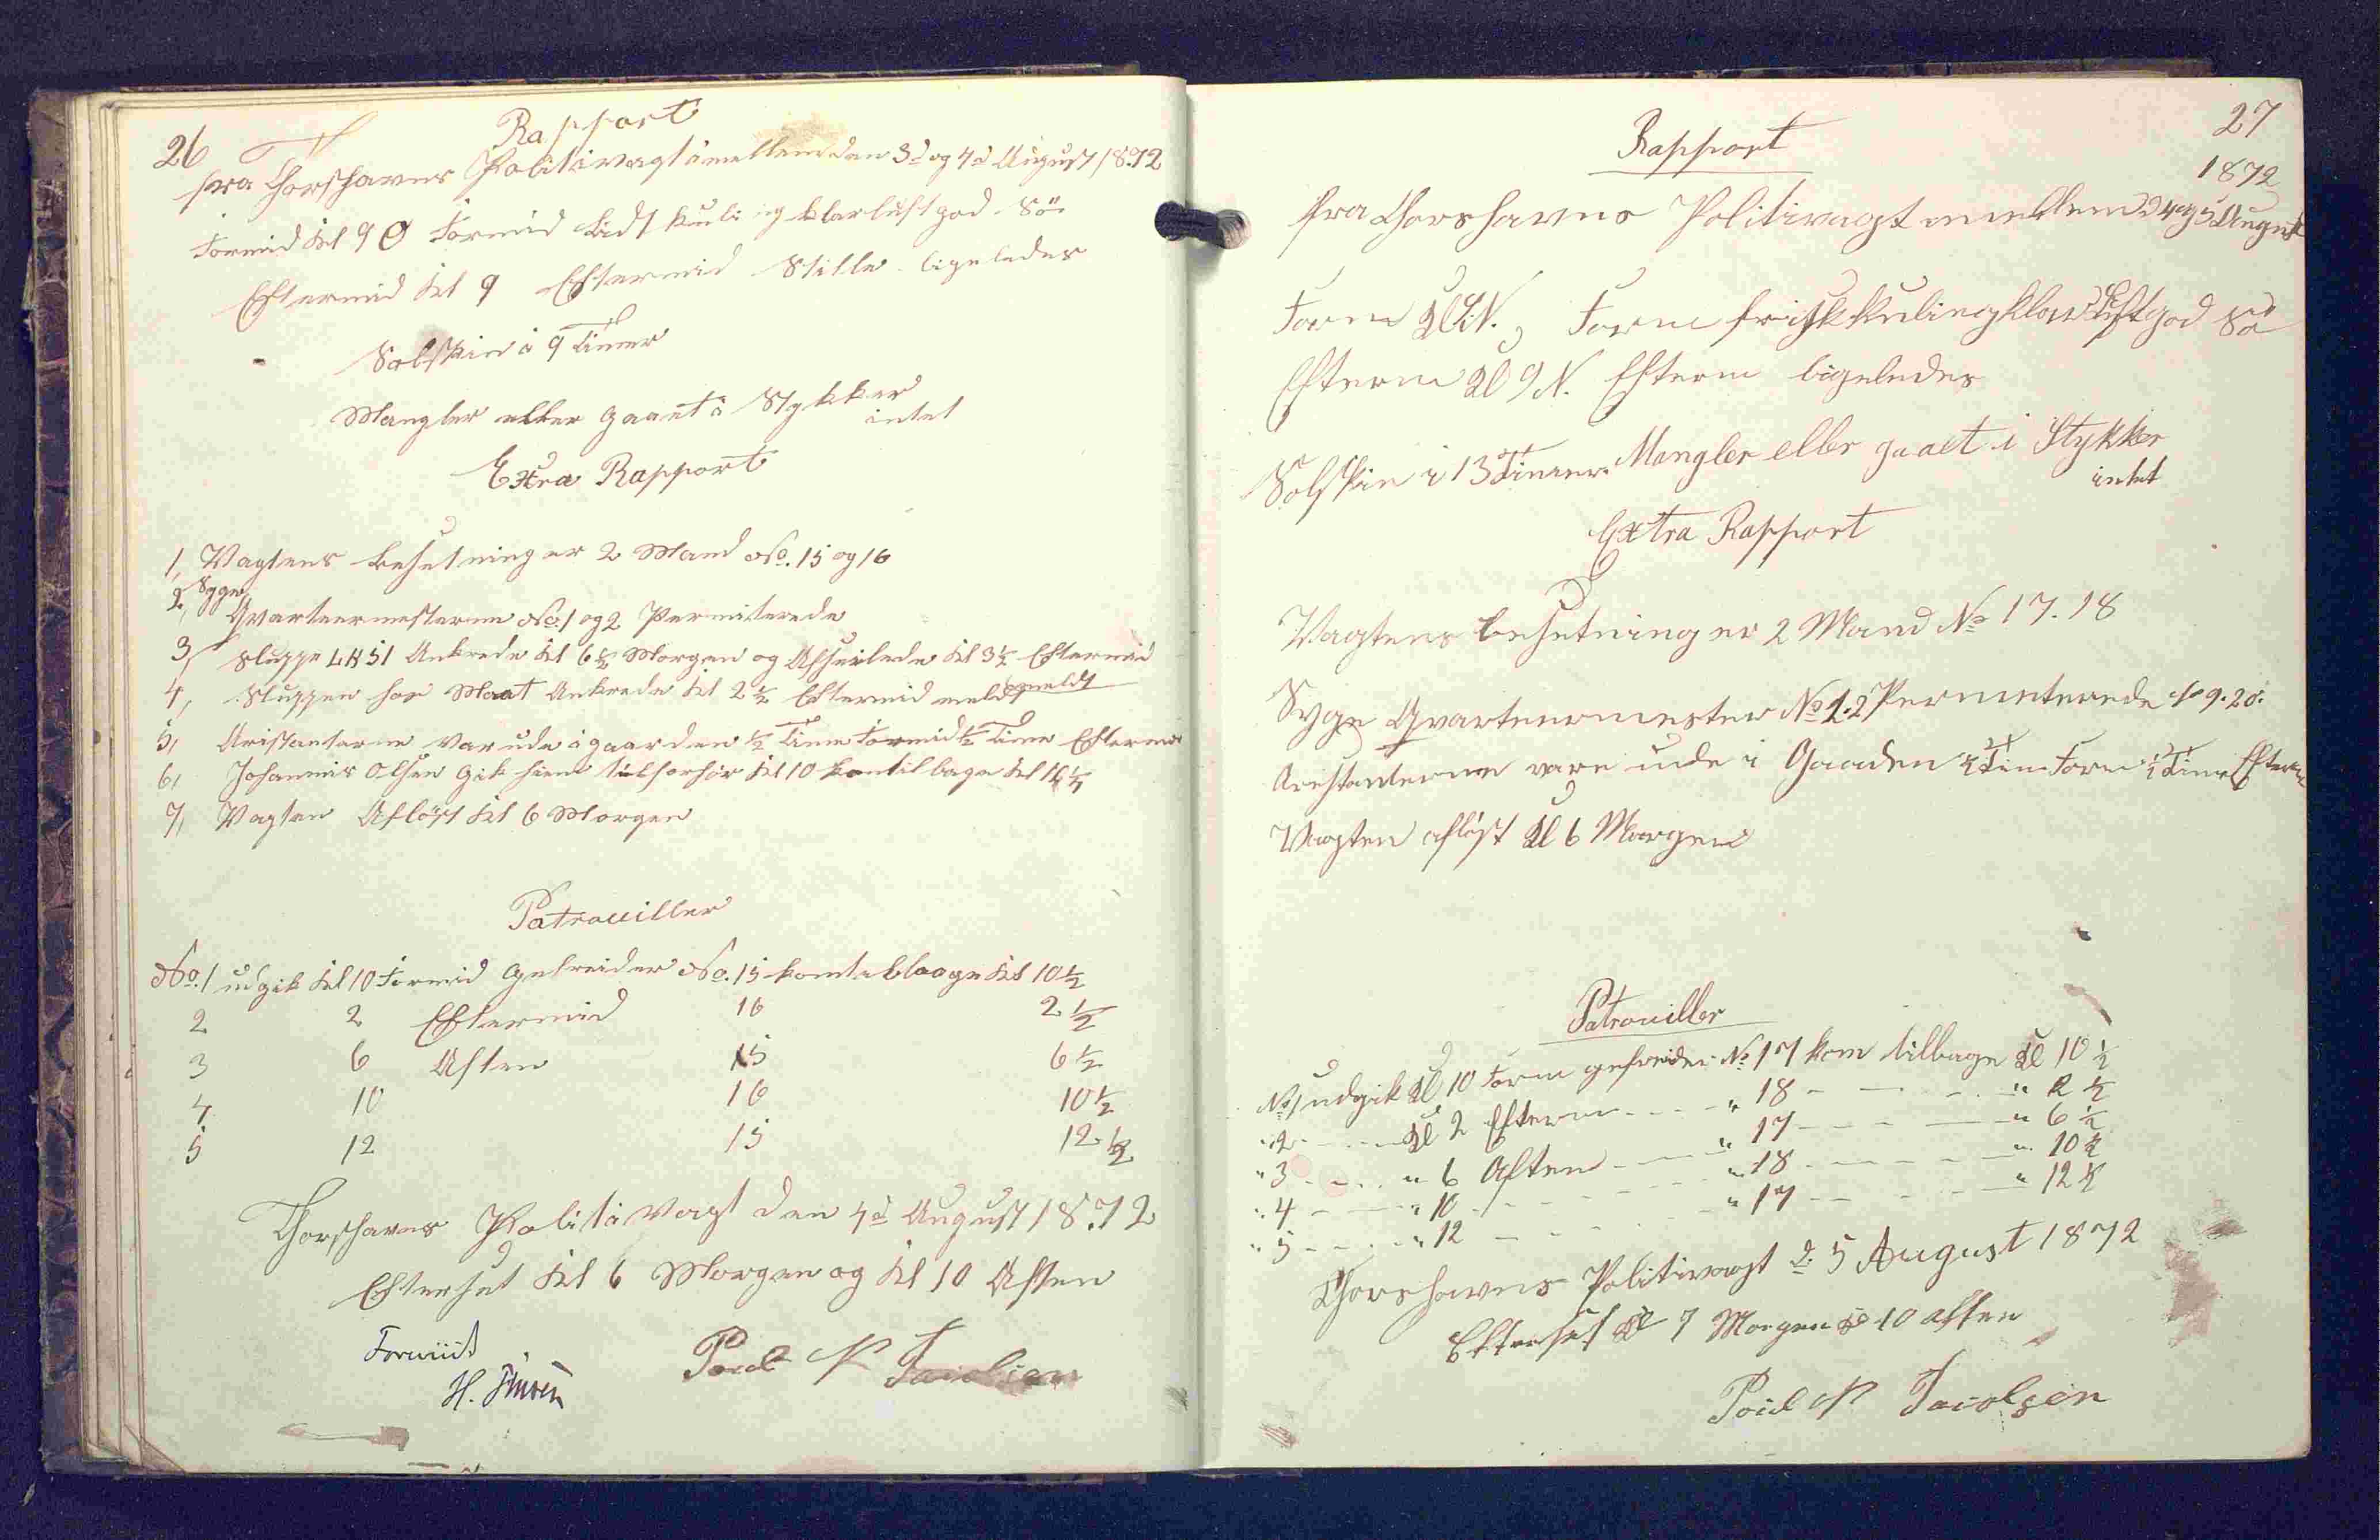 26
Rapport
fra Thorshavns Politivagt imellem den 3d og 4d August 1872
Formid Kl 9 O Formid Lidt Kuling klarluft god Sö
Eftermid Kl 9 Eftermid Stille ligeledes
Solskin i 9 Timer
Mangler eller gaaet i Stykker
intet
Extra Rapport
1, Vagtens besetning er 2 Mand No. 15 og 16
2, Syge Qvarteermesterne No. 1 og 2 Permiterede
3, Sluppe LH 51 Ankrede Kl 6½ Morgen og Afseilede Kl 3½ Eftermid
4, Sluppen Maat Ankrede Kl 2½ Eftermid
5, Aristanterne var ude i gaarden ½ Time Formid ½ Time Efterm
6, Johannis Olsen Gik hiem til forhör Kl 10 kom tilbage Kl
7, Vagten Aflöst Kl 6 Morgen
Patrouiller
No. 1 udgik Kl 10 Formid gefreider No. 15 kom tilbage Kl 10½
2 2 Eftermid 16 2½
3 6 Aften 15 6½
4 10 16 10½
5 12 15 12½
Thorshavns Politi Vagt den 4d August 1872
Efterset Kl 6 Morgen og Kl 10 Aften
Forevist
H.
Poul P Jacobsen
27
Rapport
1872
fra Thorshavns Politivagt imellem d 4 og 5 August
Form Kl N. Form frisk Kuling klar Luft god Sö
Efterm Kl 9 N. Efterm ligeledes
Solskin i 13 Timer. Mangler eller gaaet i Stykker
intet
Extra Rapport
Vagtens besetning er 2 Mand No 17. 18
Syge Qvarteermester No 1. 2 Permeterede No 9. 20.
Arestanterne vare ude i Gaarden ½ Time Form ½ Time Efterm
Vagten aflöst Kl 6 Morgen
Patrouiller
No 1 udgik Kl 10 Form gefreider No 17 kom tilbage Kl 10½
" 2 - - - Kl 2 Efterm - - - " 18 - - - " 2½
" 3 - - - " 6 Aften - - " 17 - - - " 6½
" 4 - - " 10 - - - - " 18 - - - - " 10½
" 5 - - - " 12 - - - " 17 - - - " 12½
Thorshavns Politivagt d. 5 August 1872
Efterset Kl 7 Morgen Kl 10 aften
Poul P Jacobsen